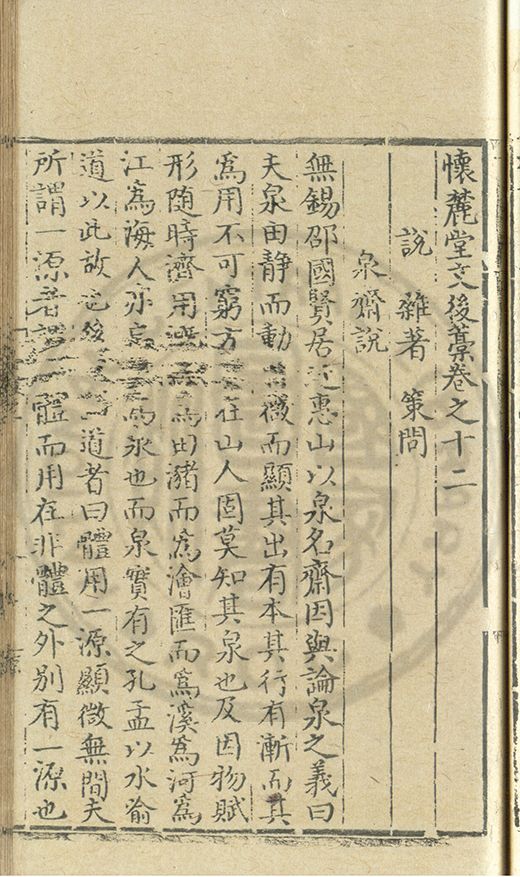 懷麓堂文後藁卷之十二
說 雜著 策問
泉齋說
無錫邵國賢居近惠山以泉名齋因與論泉之義曰
夫泉由静而動 微而顯其出有本其行有漸而其
爲用不可窮方 在山人固莫知其泉也及因物賦
形随時濟用 爲田瀦而爲澮匯而爲溪爲河爲
江爲海人亦 爲水也而泉實有之孔孟以水喻
道以此故也後 道者曰體用一源顯微無間夫
所謂一源者謂 體而用在非體之外别有一源也